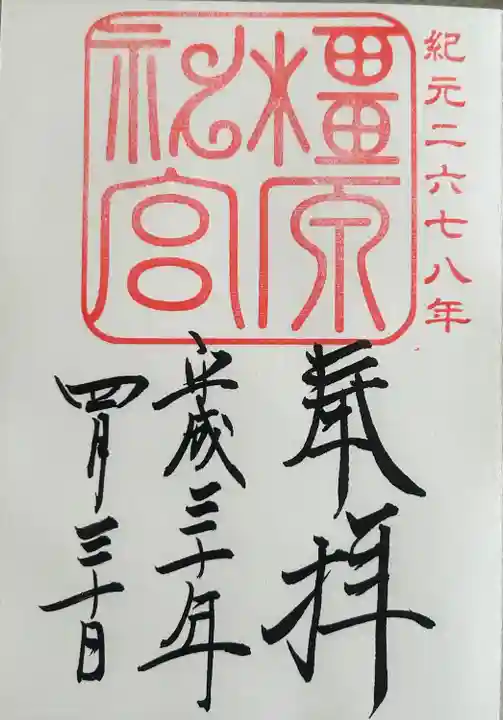 紀元二六七八年
橿原
神宮
奉拝
平成三十年
四月三十日